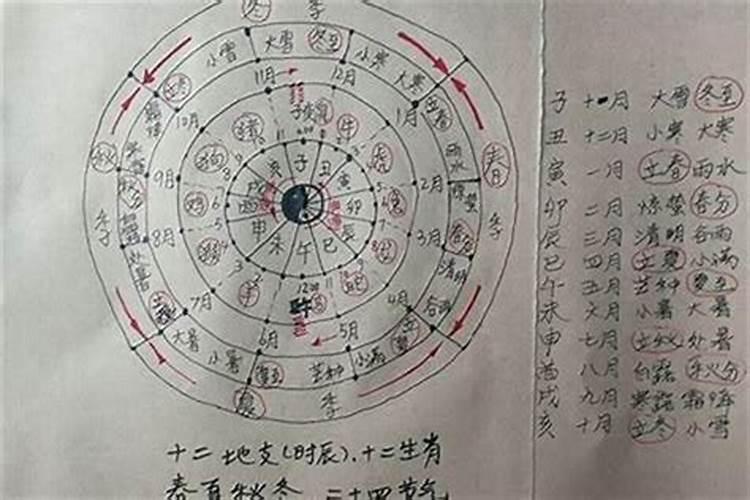 冬 季
小雪 大雪 冬至 小寒 大寒
立冬 立春
11月 12月
10月 1月
子 丑 寅 卯 辰 巳 午 未 申 酉 戌 亥
秋 春
季 季
雨水
9月 2月
惊蛰
8月 3月
春分
清明
处暑 谷雨
7月 4月
大暑 小暑 夏至 芒种 小满
6月 5月
夏 季
子 十一月 大雪 冬至
丑 十二月 小寒 大寒
寅 一月 立春 雨水
卯 二月 惊蛰 春分
辰 三月 清明 谷雨
巳 四月 立夏 小满
午 五月 芒种 夏至
未 六月 小暑 大暑
申 七月 立秋 处暑
酉 八月 白露 秋分
戌 九月 寒露 霜降
亥 十月 立冬 小雪
十二地支(时辰)、十二生肖
春夏秋冬 二十四节气